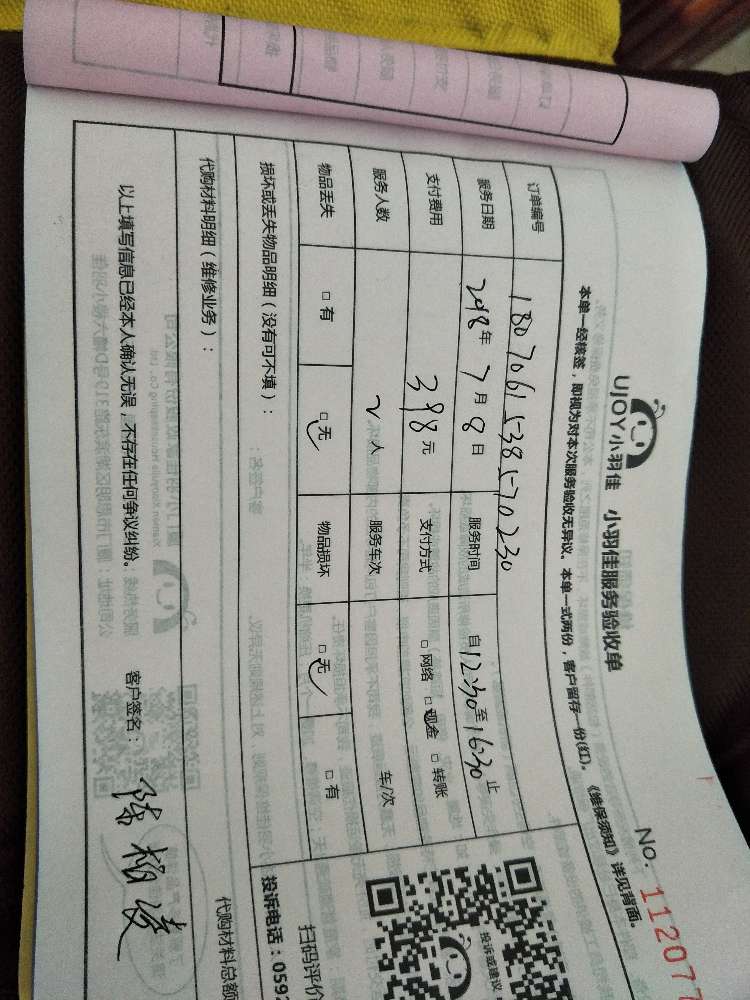 UJOY小羽佳 小羽佳服务验收单
NO. 112077
本单一经核签，即视为对本次服务验收无异议。本单一式两份，客户留存一份(红)。《维保须知》详见背面。
订单编号 1807061538570230
服务日期 2018年7月8日 服务时间 自12:30至16:30止
支付费用 398元 支付方式 □网络 □现金 □转账
服务人数 2人 服务车次 车/次
物品丢失 □有 □无 物品损坏 □无 □有
损坏或丢失物品明细（没有可不填）：
代购材料明细（维修业务）：
以上填写信息已经本人确认无误，不存在任何争议纠纷。 客户签名：
投诉或建议
扫码评价
投诉电话：059
代购材料总额